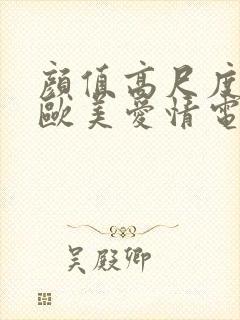 顔值高尺度
歐美愛情電
吴殿卿